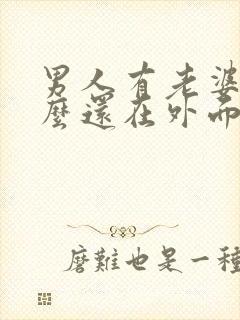 男人有老婆
麼還在外面
磨難也是一種